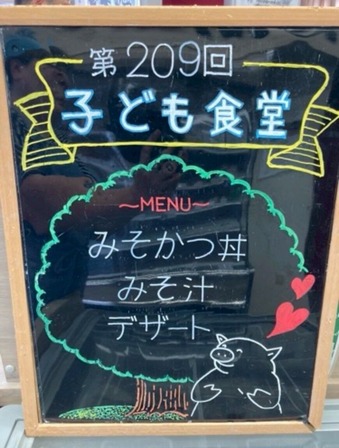 第209回
子ども食堂
～MENU～
みそかつ丼
みそ汁
デザート